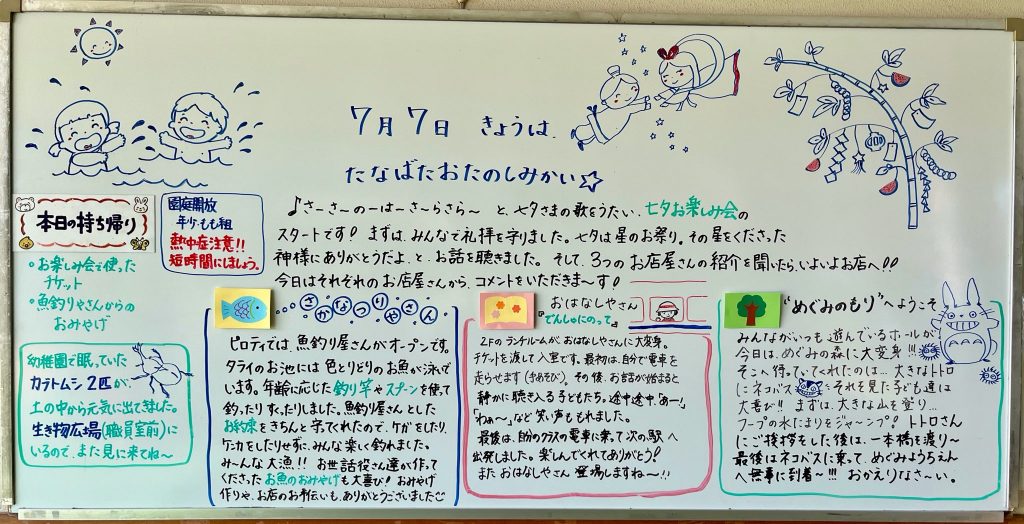 7月7日 きょうは、
たなばたおたのしみかい☆
本日の持ち帰り
・お楽しみ会で使った
チケット
・魚釣りやさんからの
おみやげ
園庭開放
年少・もも組
熱中症注意!!
短時間にしましょう。
♪さーさーのーはーさーらさら〜 と、七夕さまの歌をうたい、七夕お楽しみ会の
スタートです! まずは、みんなで礼拝を守りました。七夕は星のお祭り。その星をくださった
神様にありがとうだよ、と、お話を聴きました。そして、3つのお店屋さんの紹介を聞いたら、いよいよお店へ!!
今日はそれぞれのお店屋さんから、コメントをいただきま〜す!
幼稚園で眠っていた
カブトムシ2匹が、
土の中から元気に出てきました。
生き物広場(職員室前)に
いるので、また見に来てね〜
さかなつりやさん
ピロティでは、魚釣り屋さんがオープンです。
タライのお池には色とりどりのお魚が泳いで
います。年齢に応じた釣り竿やスプーンを使って
釣ったりすくったりしました。魚釣り屋さんとした
お約束をきちんと守ってくれたので、ケガをしたり、
ケンカをしたりせずに、みんな楽しく釣れました。
み〜んな大漁!! お世話役さん達が作って
くださったお魚のおみやげも大喜び! おみやげ
作りや、お店のお手伝いも、ありがとうございました
おはなしやさん
『でんしゃにのって』
2Fのランチルームが、おはなしやさんに大変身。
チケットを渡して入室です。最初は、自分で電車を
走らせます(手あそび)。その後、お話が始まると
静かに聴き入る子どもたち。途中途中、「あー!」
「ね〜」など笑い声ももれました。
最後は、自分のクラスの電車に乗って次の駅へ
出発しました。楽しんでくれてありがとう!
またおはなしやさん 登場しますね〜!!
“めぐみのもり”へようこそ
みんながいつも遊んでいるホールが
今日は、めぐみの森に大変身!!!
そこへ待っていてくれたのは… 大きなトトロ
にネコバス それを見た子ども達は
大喜び!! まずは、大きな山を登り…
フープの水たまりをジャンプ! トトロさん
にご挨拶をした後は、一本橋を渡り〜
最後はネコバスに乗って、めぐみようちえん
へ無事に到着〜!!! おかえりなさ〜い。